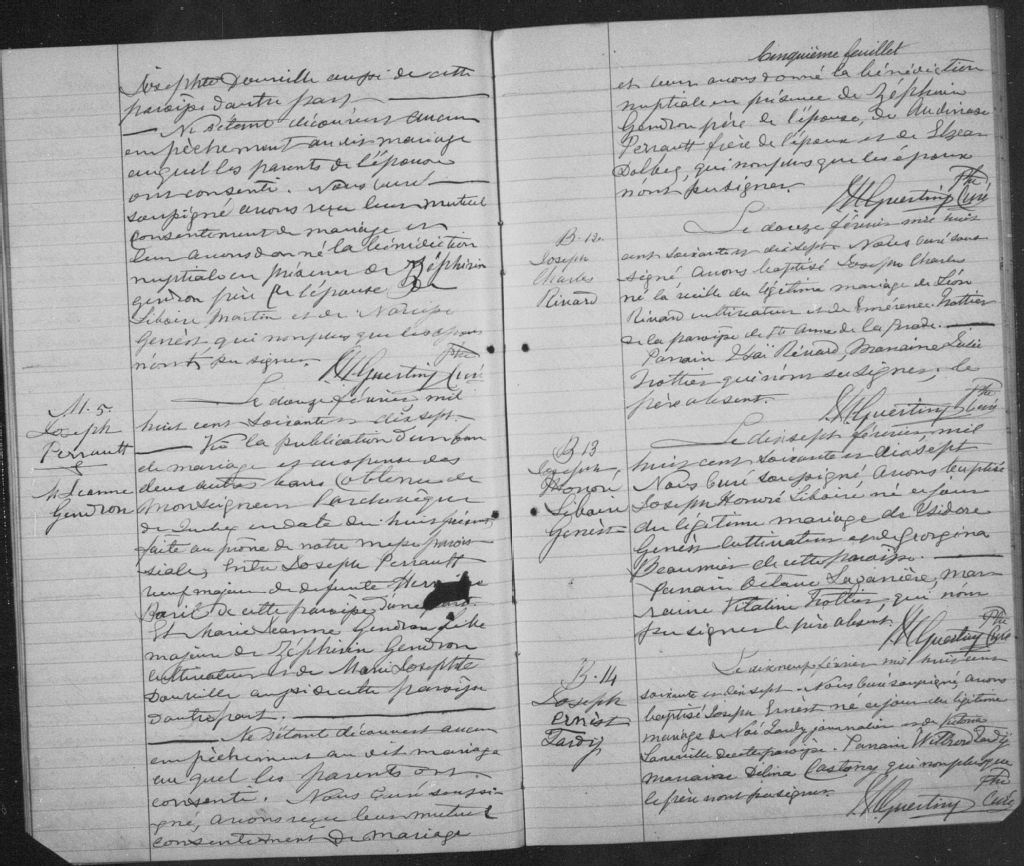 Josephte Douville aussi de cette
paroisse d'autre part,
Ne s'étant découvert aucun
empêchement au dit mariage
auquel les parents de l'épouse
ont consenti. Nous curé
soussigné avons reçu leur mutuel
consentement de mariage et
leur avons donné la bénédiction
nuptiale en présence de Zéphirin
Gendron père de l'épouse
Libaire Martin et de Narcisse
Genest qui non plus que les époux
n'ont su signer.
Ptre
Curé
M. 5.
Joseph
Perrault
&
M. Jeanne
Gendron
Le douze février mil
huit cent soixante et dix sept
Vu la publication d'un ban
de mariage et dispense des
deux autres bans obtenue de
Monseigneur l'archevêque
de Québec en date du huit
faite au prône de notre messe parois
siale, Entre Joseph Perrault
veuf majeur de défunte
Baril de cette paroisse d'une part
Et Marie Jeanne Gendron fille
majeure de Zéphirin Gendron
cultivateur et de Marie Josephte
Douville aussi de cette paroisse
d'autre part.
Ne s'étant découvert aucun
empêchement au dit mariage
au quel les parents ont
consenti. Nous Curé soussi
gné, avons reçu leur mutuel
consentement de mariage
Cinquième feuillet
et leur avons donné la bénédiction
nuptiale en présence de Zéphirin
Gendron père de l'épouse, de
Perrault frère de l'époux et de Elzear
Dolbec, qui non plus que les époux
n'ont pu signer.
Ptre
Curé
B-12.
Joseph
Charles
Rivard
Le douze février mil huit
cent soixante et dix sept. Nous curé sous
signé avons baptisé Joseph Charles
né la veille du légitime mariage de Léon
Rivard cultivateur et de Emérence Trottier
de la paroisse de Ste Anne de la Pérade.
Parrain Rivard Marraine
Trottier qui n'ont su signer, le
père absent.
Ptre
Curé
B 13
Joseph
Honoré
Libaire
Genest
Le dix sept février, mil
huit cent soixante et dix sept
Nous Curé soussigné avons baptisé
Joseph Honoré Libaire né ce jour
du légitime mariage de Isidore
Genest Cultivateur et de Georgina
Beaumier de cette paroisse.
Parrain Octave mar
raine Vitaline Trottier, qui n'ont
pu signer le père absent.
Ptre
Curé
B-14
Joseph
Ernest
Tardif
Le dix neuf février mil huit cent
soixante et dix sept. Nous Curé soussigné avons
baptisé Joseph Ernest né ce jour du légitime
mariage de Noé Tardif journalier et de
de cette paroisse. Parrain Tardif
marraine Délina qui non plus que
le père n'ont pu signer.
Ptre
Curé